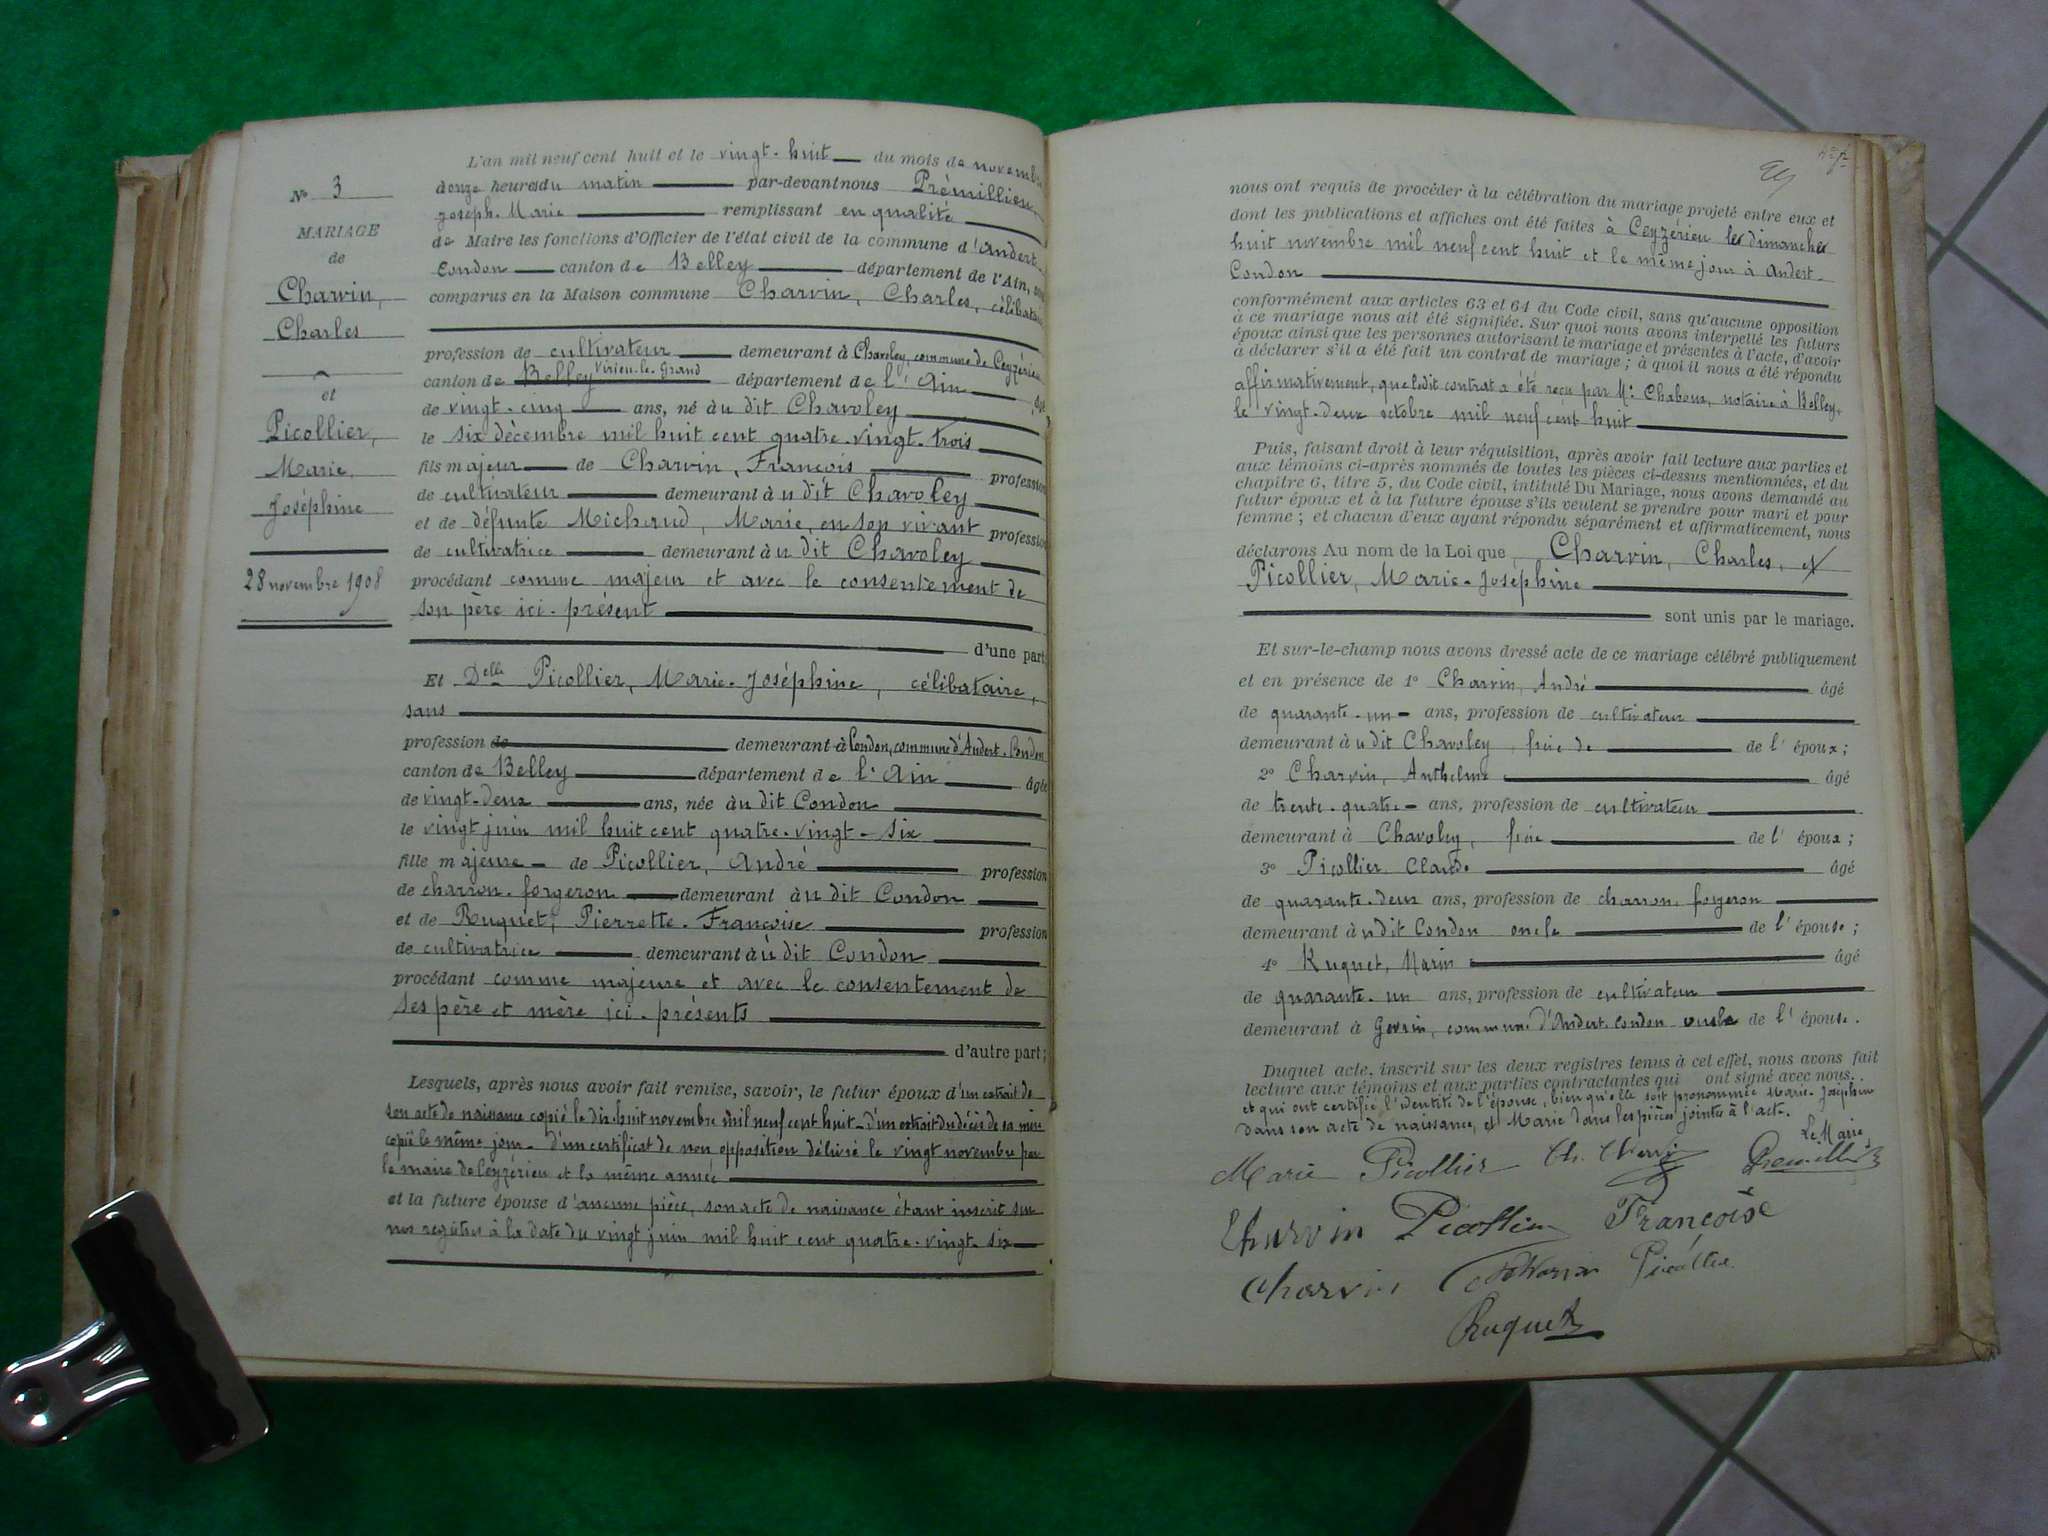 N° 3
MARIAGE
de
Charvin,
Charles
et
Picollier,
Marie
Joséphine
28 novembre 1908
L'an mil neuf cent huit et le vingt-huit du mois de novembre
donze heures du matin par-devant nous Prémillieu
Joseph-Marie remplissant en qualité
de Maire les fonctions d'Officier de l'état civil de la commune d'Andert-
Condon canton de Belley département de l'Ain, sont
comparus en la Maison commune Charvin, Charles, célibataire
profession de cultivateur demeurant à Chavoley, commune de Ceyzérieu
canton de Belley Virieu-le-Grand département de l'Ain âgé
de vingt-cinq ans, né àu dit Chavoley
le six décembre mil huit cent quatre-vingt-trois
fils majeur de Charvin, François profession
de cultivateur demeurant àu dit Chavoley
et de défunte Michaud, Marie, en son vivant profession
de cultivatrice demeurant àu dit Chavoley
procédant comme majeur et avec le consentement de
son père ici-présent
d'une part;
Et Delle Picollier, Marie-Joséphine, célibataire,
sans
profession de demeurant à Condon, commune d'Andert-Condon
canton de Belley département de l'Ain âgée
de vingt-deux ans, née àu dit Condon
le vingt juin mil huit cent quatre-vingt-six
fille majeure de Picollier, André profession
de charron-forgeron demeurant àu dit Condon
et de Ruquet, Pierrette-Françoise profession
de cultivatrice demeurant àu dit Condon
procédant comme majeure et avec le consentement de
ses père et mère ici-présents
d'autre part;
Lesquels, après nous avoir fait remise, savoir, le futur époux d'un extrait de
son acte de naissance copié le dix-huit novembre mil neuf cent huit - d'un extrait du décès de sa mère
copié le même jour - d'un certificat de non opposition délivré le vingt novembre par
le maire de Ceyzérieu et la même année
et la future épouse d'aucune pièce, son acte de naissance étant inscrit sur
nos registres à la date du vingt juin mil huit cent quatre-vingt-six
nous ont requis de procéder à la célébration du mariage projeté entre eux et
dont les publications et affiches ont été faites à Ceyzérieu le dimanche
huit novembre mil neuf cent huit et le même jour à Andert-
Condon
conformément aux articles 63 et 64 du Code civil, sans qu'aucune opposition
à ce mariage nous ait été signifiée. Sur quoi nous avons interpellé les futurs
époux ainsi que les personnes autorisant le mariage et présentes à l'acte, d'avoir
à déclarer s'il a été fait un contrat de mariage; à quoi il nous a été répondu
affirmativement, que ledit contrat a été reçu par Me Chaboux, notaire à Belley,
le vingt-deux octobre mil neuf cent huit
Puis, faisant droit à leur réquisition, après avoir fait lecture aux parties et
aux témoins ci-après nommés de toutes les pièces ci-dessus mentionnées, et du
chapitre 6, titre 5, du Code civil, intitulé Du Mariage, nous avons demandé au
futur époux et à la future épouse s'ils veulent se prendre pour mari et pour
femme; et chacun d'eux ayant répondu séparément et affirmativement, nous
déclarons Au nom de la Loi que, Charvin, Charles, et
Picollier, Marie-Joséphine
sont unis par le mariage.
Et sur-le-champ nous avons dressé acte de ce mariage célébré publiquement
et en présence de 1° Charvin, André âgé
de quarante-un ans, profession de cultivateur
demeurant àu dit Chavoley, frère de de l'époux;
2° Charvin, Anthelme âgé
de trente-quatre ans, profession de cultivateur
demeurant à Chavoley, frère de l'époux;
3° Picollier, Claude âgé
de quarante-deux ans, profession de charron-forgeron
demeurant àu dit Condon oncle de l'épouse;
4° Ruquet, Marin âgé
de quarante-un ans, profession de cultivateur
demeurant à Gevrin, commune d'Andert-Condon oncle de l'épouse.
Duquel acte, inscrit sur les deux registres tenus à cet effet, nous avons fait
lecture aux témoins et aux parties contractantes qui ont signé avec nous.
et qui ont certifié l'identité de l'épouse, bien qu'elle soit prénommée Marie-Joséphine
dans son acte de naissance, et Marie dans les pièces jointes à l'acte.
Le Maire
Marie Picollier Ch. Charvin Prémillieu
Charvin Picollier Françoise
Charvin Charvin Picollier
Ruquet